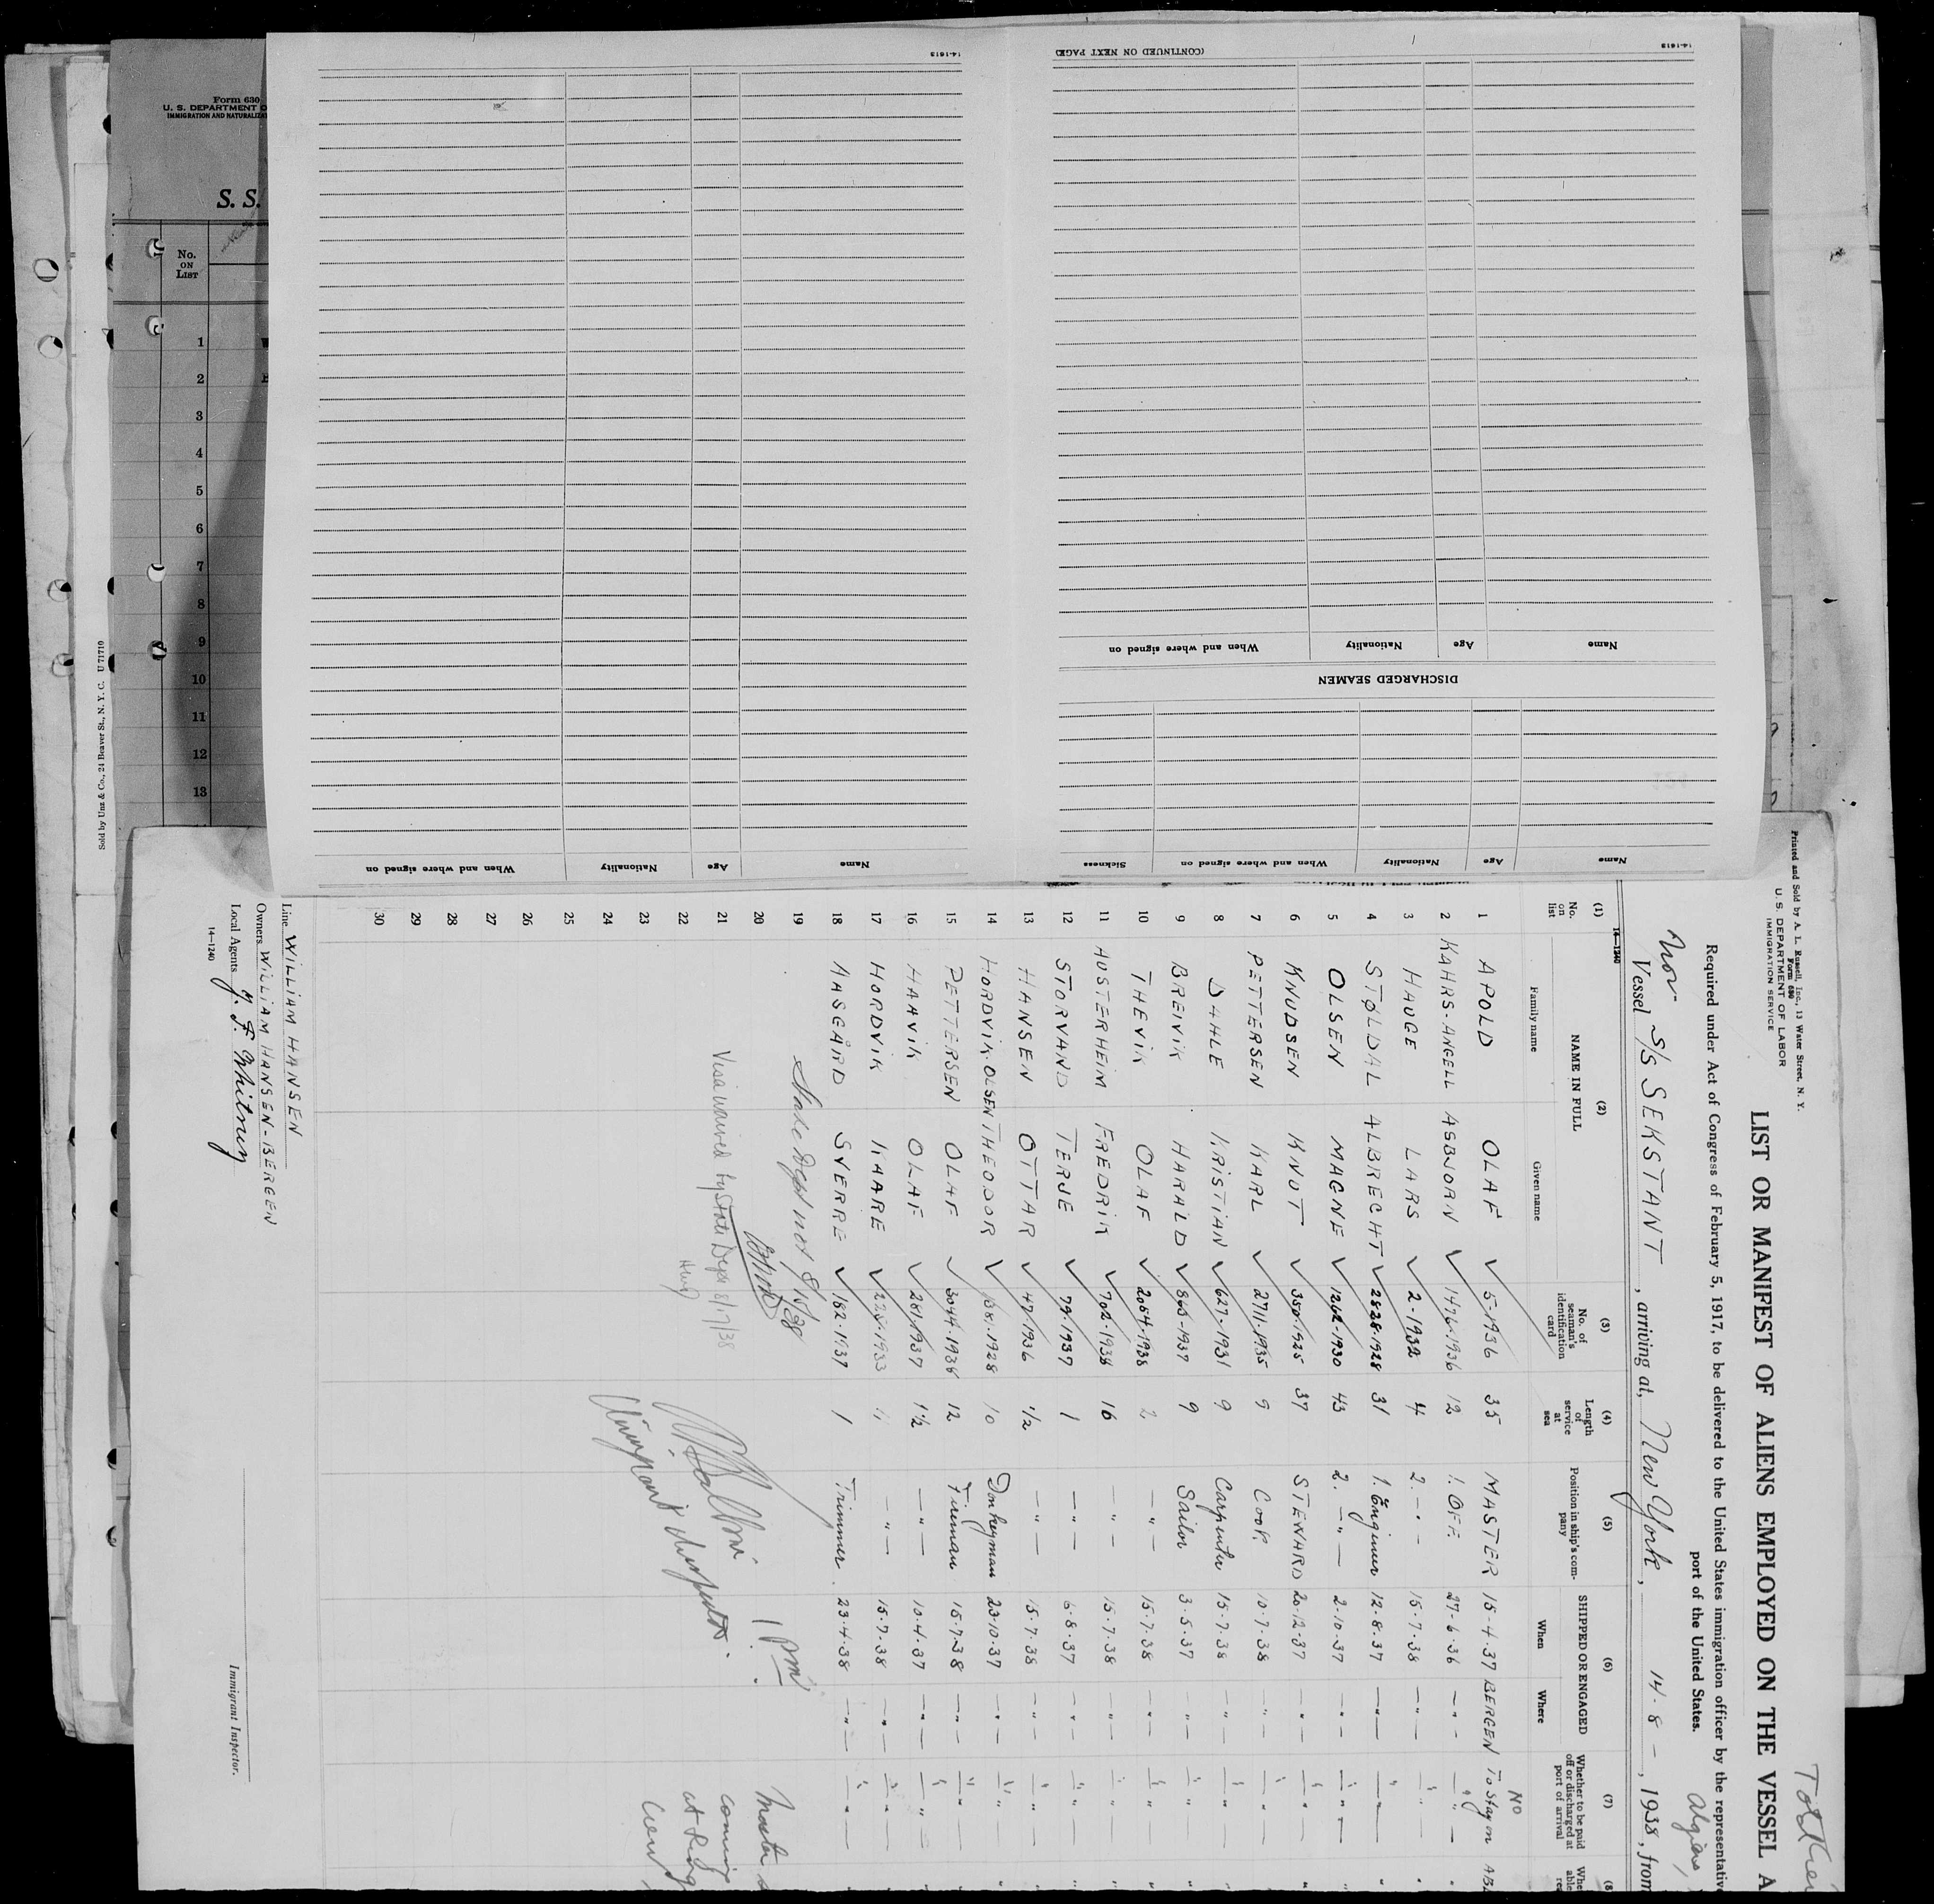 Form 630
U. S. DEPARTMENT O
IMMIGRATION AND NATURALIZAT
S. S.
No.
ON
LIST
1
2
3
4
5
6
7
8
9
10
11
12
13
Sold by Unz & Co., 24 Beaver St., N. Y. C. U 71710
14-1613
Name Age Nationality When and where signed on
14-1613
(CONTINUED ON NEXT PAGE)
Name Age Nationality When and where signed on Sickness
DISCHARGED SEAMEN
Name Age Nationality When and where signed on
Printed and Sold by A. L. Russell, Inc., 13 Water Street, N. Y.
Form 680
U. S DEPARTMENT OF LABOR
IMMIGRATION SERVICE
LIST OR MANIFEST OF ALIENS EMPLOYED ON THE VESSEL A
Required under Act of Congress of February 5, 1917, to be delivered to the United States immigration officer by the representativ
port of the United States.
Nor.
Vessel S/S SEKSTANT, arriving at, New York, 14-8-, 1938, from
14-1240
(1) (2) (3) (4) (5) (6) (7) (8
No. on list NAME IN FULL No. of seaman's identification card Length of service at sea Position in ship's company SHIPPED OR ENGAGED Whether to be paid off or discharged at port of arrival
Family name Given name When Where
NO
1 APOLD OLAF ✓ 5-1936 35 MASTER 15-4-37 BERGEN To stay on
2 KAHRS-ANGELL ASBJORN ✓ 1476-1936 12 1. OFF. 27-6-36 -"- -"-
3 HAUGE LARS ✓ 2-1932 4 2. -"- 15-7-38 -"- -"-
4 STØLDAL ALBRECHT ✓ 2828-1928 31 1. Engineer 12-8-37 -"- -"-
5 OLSEN MAGNE ✓ 1262-1930 43 2. -"- 2-10-37 -"- -"-
6 KNUDSEN KNUT ✓ 350-1925 37 STEWARD 20-12-37 -"- -"-
7 PETTERSEN KARL ✓ 2711-1935 9 COOK 10-7-38 -"- -"-
8 DAHLE KRISTIAN ✓ 627-1931 9 Carpenter 15-7-38 -"- -"-
9 BREIVIK HARALD ✓ 863-1937 9 Sailor 3-5-37 -"- -"-
10 THEVIK OLAF ✓ 2054-1938 2 -"- 15-7-38 -"- -"-
11 AUSTERHEIM FREDRIK ✓ 702-1938 16 -"- 15-7-38 -"- -"-
12 STORVAND TERJE ✓ 79-1937 1 -"- 6-8-37 -"- -"-
13 HANSEN OTTAR ✓ 47-1936 1/2 -"- 15-7-38 -"- -"-
14 HORDVIK OLSEN THEODOR ✓ 381-1928 10 Donkeyman 23-10-37 -"- -"-
15 PETTERSEN OLAF ✓ 3044-1938 12 Fireman 15-7-38 -"- -"-
16 HAAVIK OLAF ✓ 287-1937 1 1/2 -"- 10-4-37 -"- -"-
17 HORDVIK KAARE ✓ 228-1933 -"- 15-7-38 -"- -"-
18 AASGÅRD SVERRE ✓ 182-1937 1 Trimmer 23-4-38 -"- -"-
19
20
21
22
23
24
25
26
27
28
29
30
State Dept not 8/15/38
Visa waived by State Dept 8/17/38
1 Pm
Immigrant Inspector.
Master
coming
at
Line WILLIAM HANSEN
Owners WILLIAM HANSEN-BERGEN
Local Agents J. F. Whitney
14-1240
Immigrant Inspector.